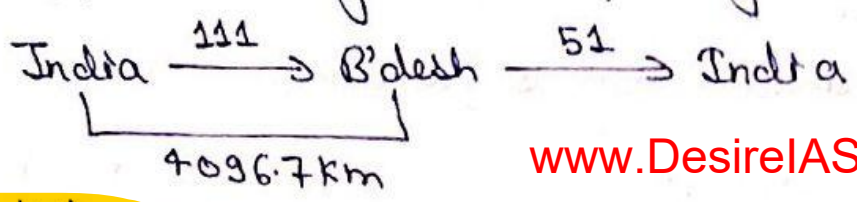 India 111→ B'desh 51→ India
4096.7 Km
www.DesireIAS